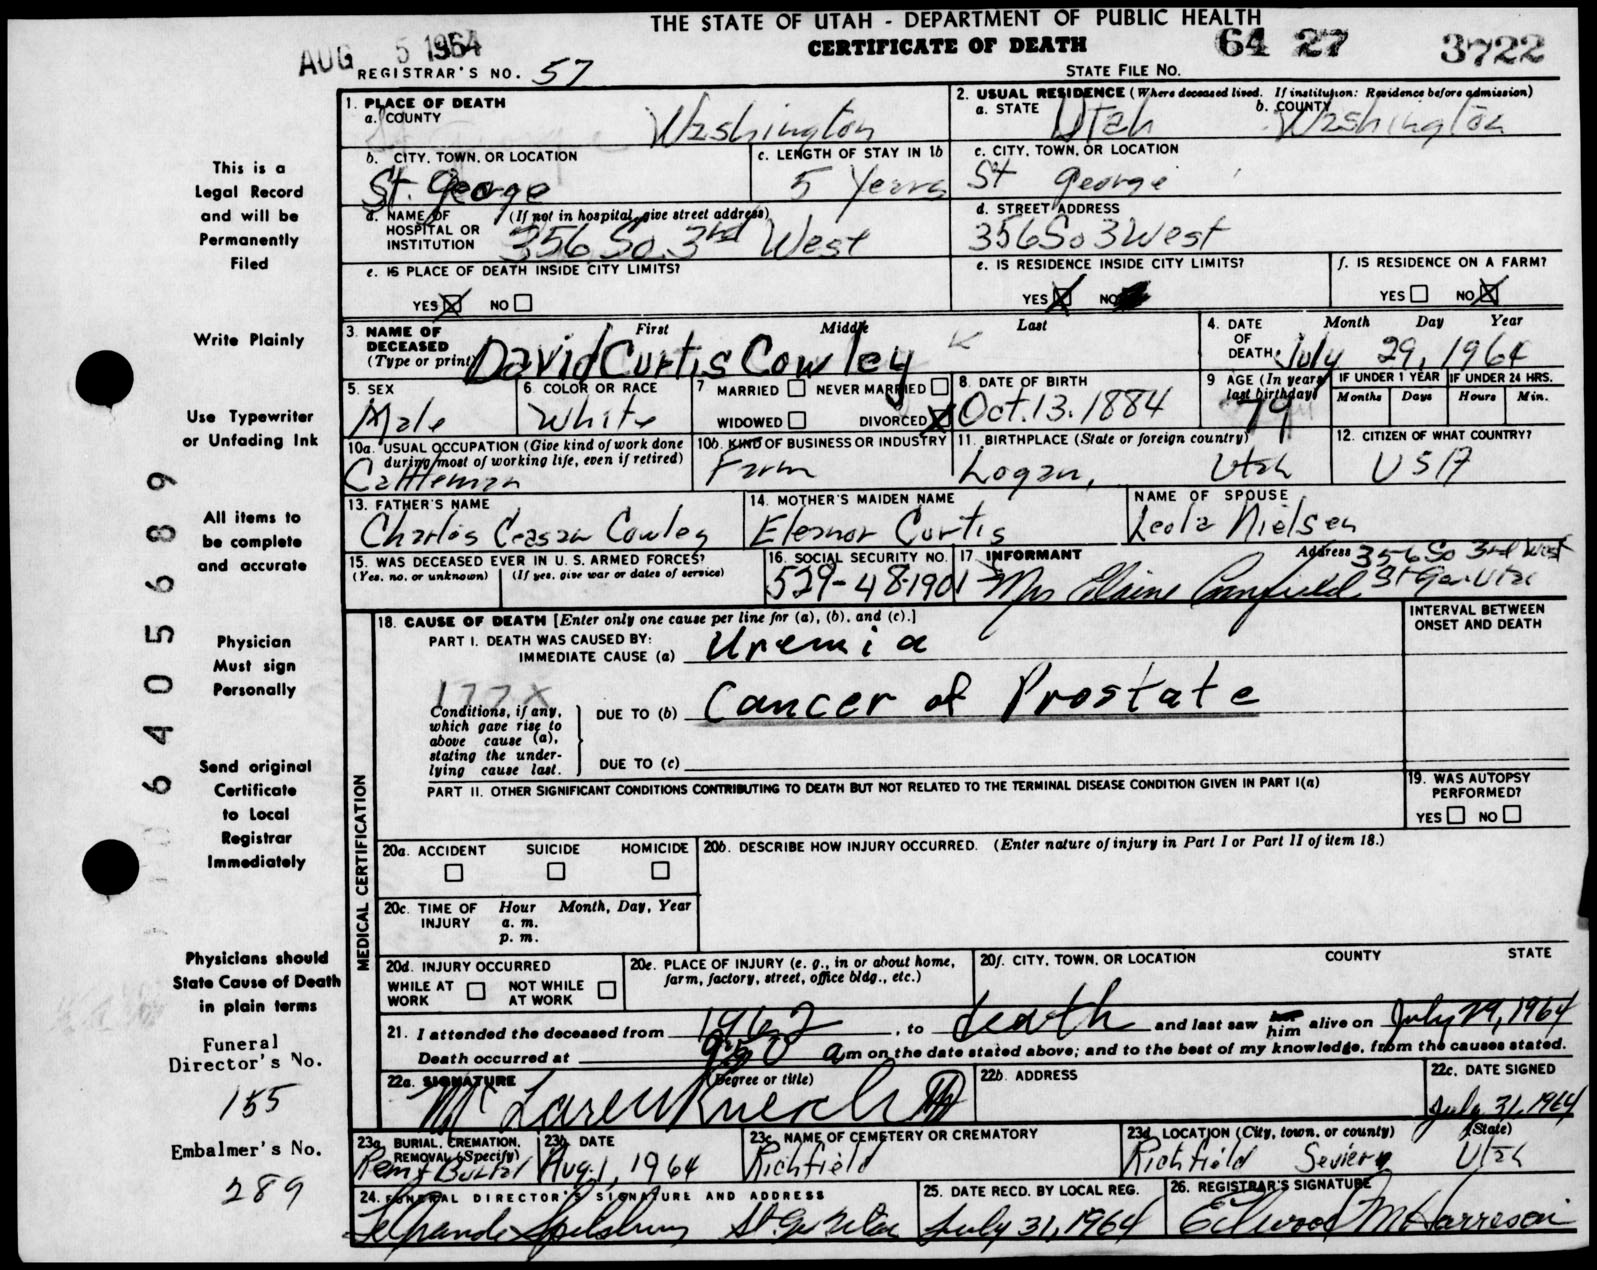 THE STATE OF UTAH - DEPARTMENT OF PUBLIC HEALTH
CERTIFICATE OF DEATH
AUG 5 1964
64 27 3722
REGISTRAR'S NO. 57
STATE FILE NO.
1. PLACE OF DEATH
a. COUNTY Washington
2. USUAL RESIDENCE (Where deceased lived. If institution: Residence before admission)
a. STATE Utah b. COUNTY Washington
b. CITY, TOWN, OR LOCATION St. George
c. LENGTH OF STAY IN 1b 5 Years
c. CITY, TOWN, OR LOCATION St George
d. NAME OF HOSPITAL OR INSTITUTION (If not in hospital, give street address) 356 So. 3rd West
d. STREET ADDRESS 356 So 3 West
e. IS PLACE OF DEATH INSIDE CITY LIMITS?
YES NO
e. IS RESIDENCE INSIDE CITY LIMITS?
YES NO
f. IS RESIDENCE ON A FARM?
YES NO
3. NAME OF DECEASED (Type or print) First Middle Last
David Curtis Cowley
4. DATE OF DEATH Month Day Year
July 29, 1964
5. SEX Male
6. COLOR OR RACE White
7 MARRIED NEVER MARRIED
WIDOWED DIVORCED
8. DATE OF BIRTH Oct. 13. 1884
9 AGE (In years last birthday) 79
IF UNDER 1 YEAR Months Days
IF UNDER 24 HRS. Hours Min.
10a. USUAL OCCUPATION (Give kind of work done during most of working life, even if retired) Cattleman
10b. KIND OF BUSINESS OR INDUSTRY Farm
11. BIRTHPLACE (State or foreign country) Logan, Utah
12. CITIZEN OF WHAT COUNTRY? USA
13. FATHER'S NAME Charles Ceasar Cowley
14. MOTHER'S MAIDEN NAME Eleanor Curtis
NAME OF SPOUSE Leola Nielsen
15. WAS DECEASED EVER IN U. S. ARMED FORCES?
(Yes, no, or unknown) (If yes, give war or dates of service)
16. SOCIAL SECURITY NO. 529-48-1901
17. INFORMANT Mrs Elaine Canfield
Address 356 So 3rd West St Geo. Utah
18. CAUSE OF DEATH [Enter only one cause per line for (a), (b), and (c).]
INTERVAL BETWEEN ONSET AND DEATH
PART I. DEATH WAS CAUSED BY:
IMMEDIATE CAUSE (a) Uremia
177X
Conditions, if any, which gave rise to above cause (a), stating the underlying cause last.
DUE TO (b) Cancer of Prostate
DUE TO (c)
PART II. OTHER SIGNIFICANT CONDITIONS CONTRIBUTING TO DEATH BUT NOT RELATED TO THE TERMINAL DISEASE CONDITION GIVEN IN PART I(a)
19. WAS AUTOPSY PERFORMED?
YES NO
MEDICAL CERTIFICATION
20a. ACCIDENT SUICIDE HOMICIDE
20b. DESCRIBE HOW INJURY OCCURRED. (Enter nature of injury in Part I or Part II of item 18.)
20c. TIME OF INJURY Hour Month, Day, Year
a. m.
p. m.
20d. INJURY OCCURRED
WHILE AT WORK NOT WHILE AT WORK
20e. PLACE OF INJURY (e. g., in or about home, farm, factory, street, office bldg., etc.)
20f. CITY, TOWN, OR LOCATION COUNTY STATE
21. I attended the deceased from 1962, to death and last saw him alive on July 29, 1964
Death occurred at am on the date stated above; and to the best of my knowledge, from the causes stated.
22a. SIGNATURE (Degree or title)
22b. ADDRESS
22c. DATE SIGNED July 31, 1964
23a. BURIAL, CREMATION, REMOVAL (Specify) Rem & Burial
23b. DATE Aug. 1, 1964
23c. NAME OF CEMETERY OR CREMATORY Richfield
23d. LOCATION (City, town, or county) (State)
Richfield Sevier Utah
24. FUNERAL DIRECTOR'S SIGNATURE AND ADDRESS
25. DATE RECD. BY LOCAL REG. July 31, 1964
26. REGISTRAR'S SIGNATURE
This is a
Legal Record
and will be
Permanently
Filed
Write Plainly
Use Typewriter
or Unfading Ink
All items to
be complete
and accurate
Physician
Must sign
Personally
Send original
Certificate
to Local
Registrar
Immediately
Physicians should
State Cause of Death
in plain terms
Funeral
Director's No.
155
Embalmer's No.
289
6405689